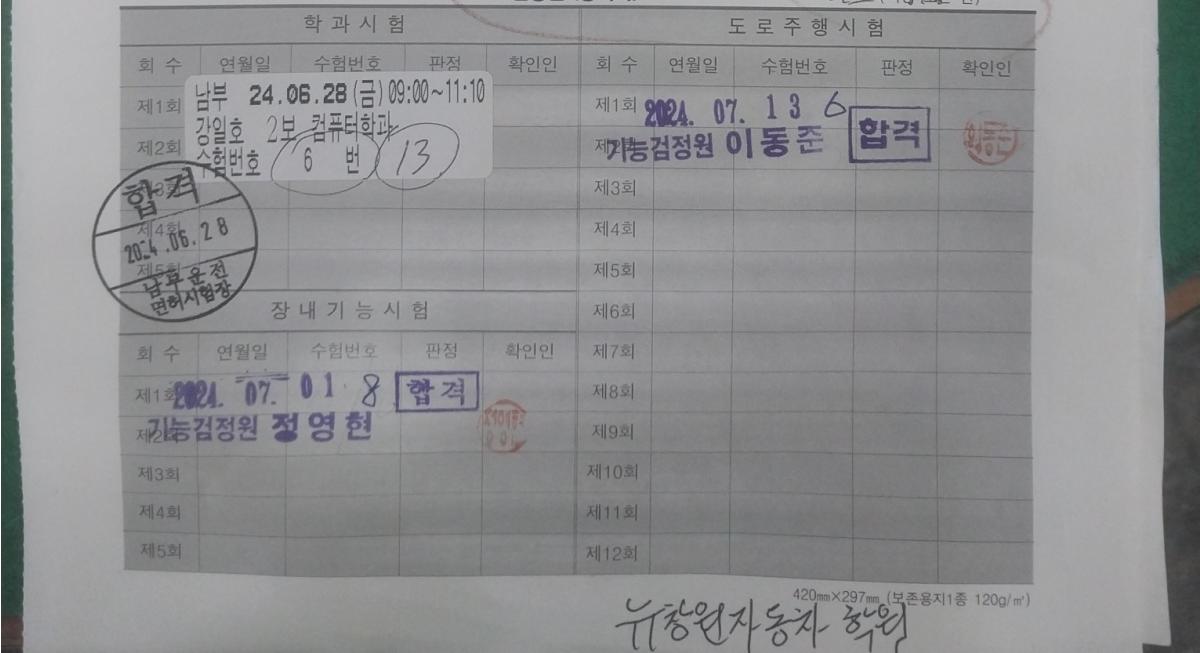 학과시험
회 수 연월일 수험번호 판정 확인인
제1회
남부 24.06.28(금) 09:00~11:10
강일호 2보 컴퓨터학과
제2회
수험번호 6 번 13
합격
제4회
2024.06.28
제5회
남부운전
면허시험장
장내기능시험
회 수 연월일 수험번호 판정 확인인
제1회 2024. 07. 01 8 합격
제2회 기능검정원 정영현
제3회
제4회
제5회
도로주행시험
회 수 연월일 수험번호 판정 확인인
제1회 2024. 07. 13 6 합격
기능검정원 이동준
제3회
제4회
제5회
제6회
제7회
제8회
제9회
제10회
제11회
제12회
420㎜×297㎜ (보존용지1종 120g/㎡)
뉴창원자동차 학원